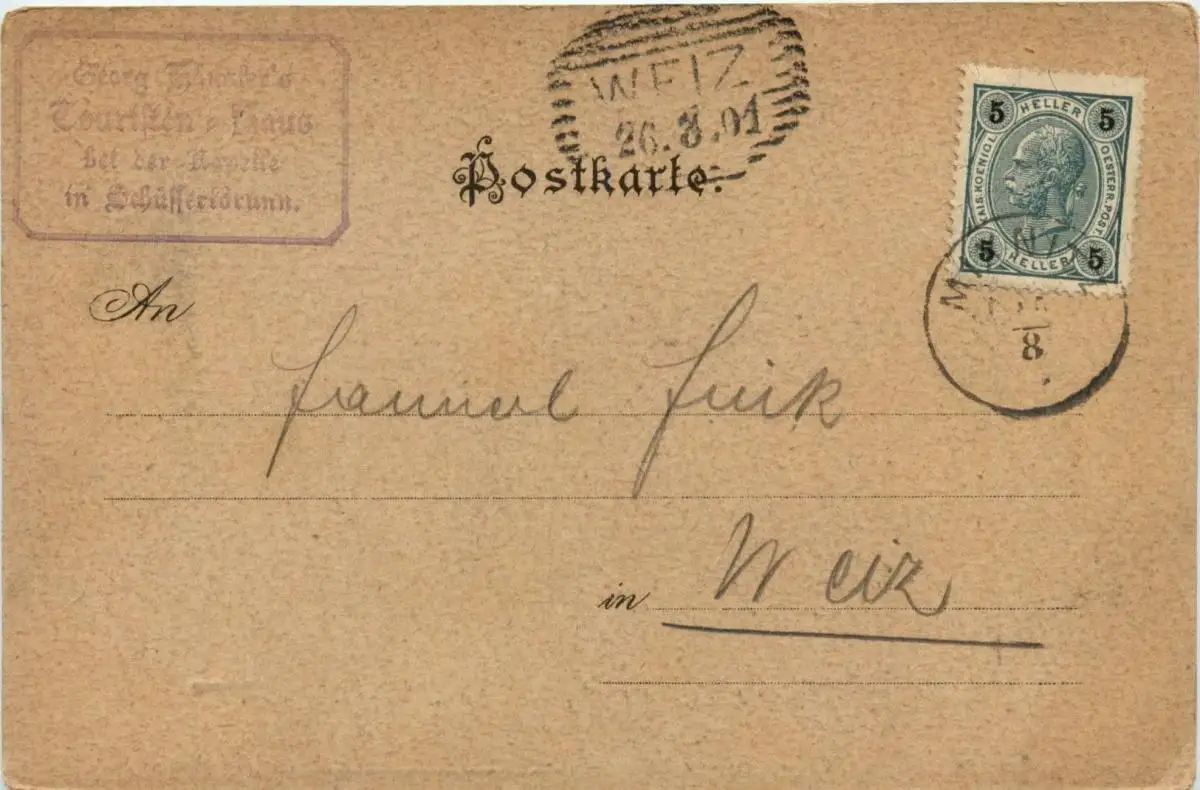 Georg
Touristen-Haus
bei der Kapelle
in Schüsserlbrunn.
WEIZ
26.8.01
Postkarte.
5 HELLER 5
KAIS. KOENIGL. OESTERR. POST.
5 HELLER 5
An
8
in Weiz